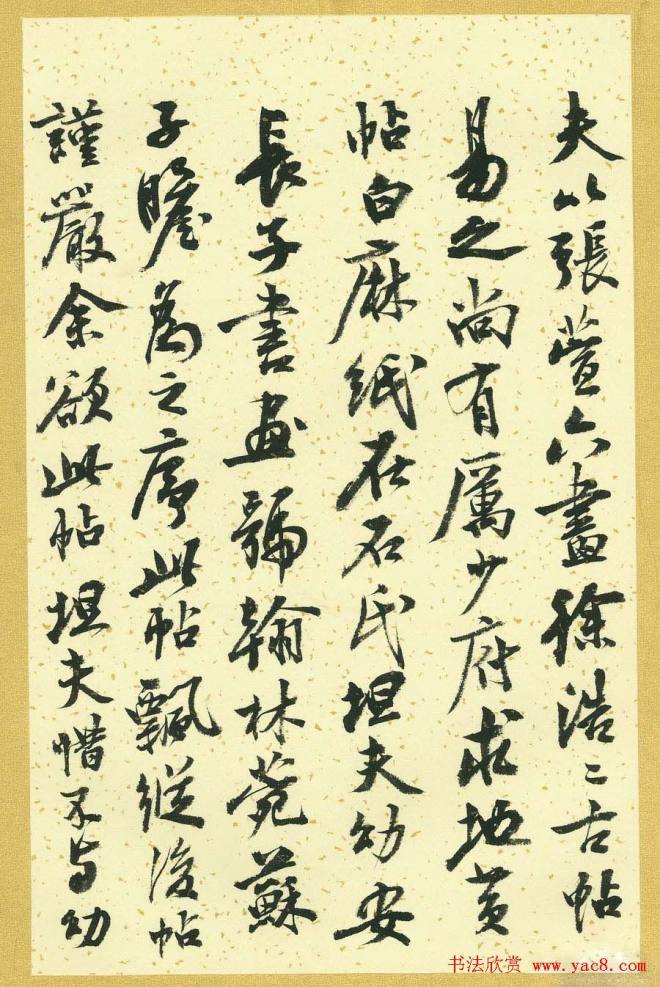 夫以張萱六畫徐浩二古帖
易之尚有厲少府求地黄
帖白麻紙在石氏坦夫幼安
長子書畫號翰林菀蘇
子瞻為之序此帖飄縱後帖
謹嚴余欲此帖坦夫惜不与幼
书法欣赏 www.yac8.com